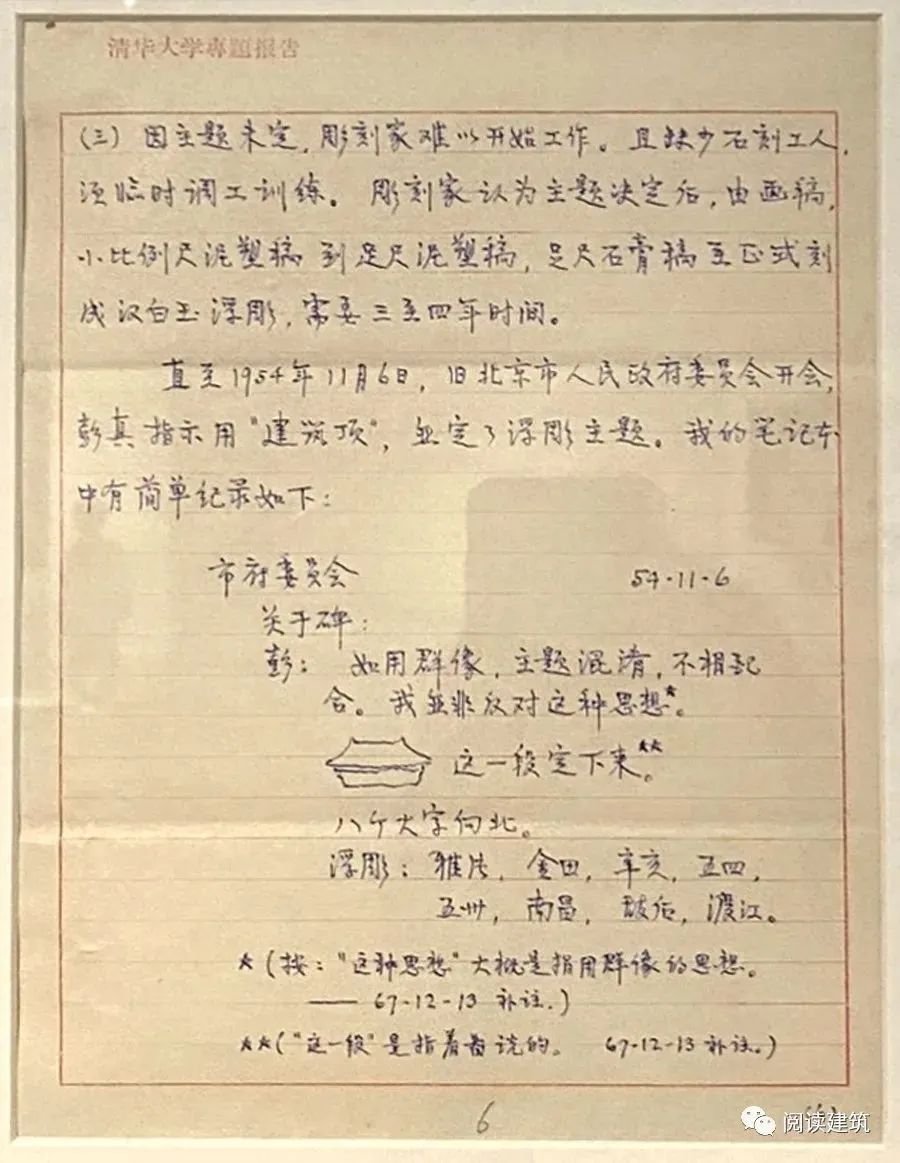 清华大学專題报告
(三) 因主题未定，彫刻家难以开始工作。且缺少石刻工人，
须临时调工训练。彫刻家认为主题决定后，由画稿，
小比例尺泥塑稿到足尺泥塑稿，足尺石膏稿至正式刻
成汉白玉浮彫，需要三至四年时间。
直至1954年11月6日，旧北京市人民政府委员会开会，
彭真指示用“建筑顶”，并定了浮彫主题。我的笔记本
中有简单纪录如下：
市府委员会 54-11-6
关于碑：
彭：如用群像，主题混淆，不相配
合。我並非反对这种思想★。
这一段定下来★★。
八个大字向北。
浮彫：雅片，金田，辛亥，五四，
五卅，南昌，敌后，渡江。
★(按：“这种思想”大概是指用群像的思想。
—— 67-12-13 补注.)
★★(“这一段”是指着图说的。 67-12-13 补注.)
6
阅读建筑